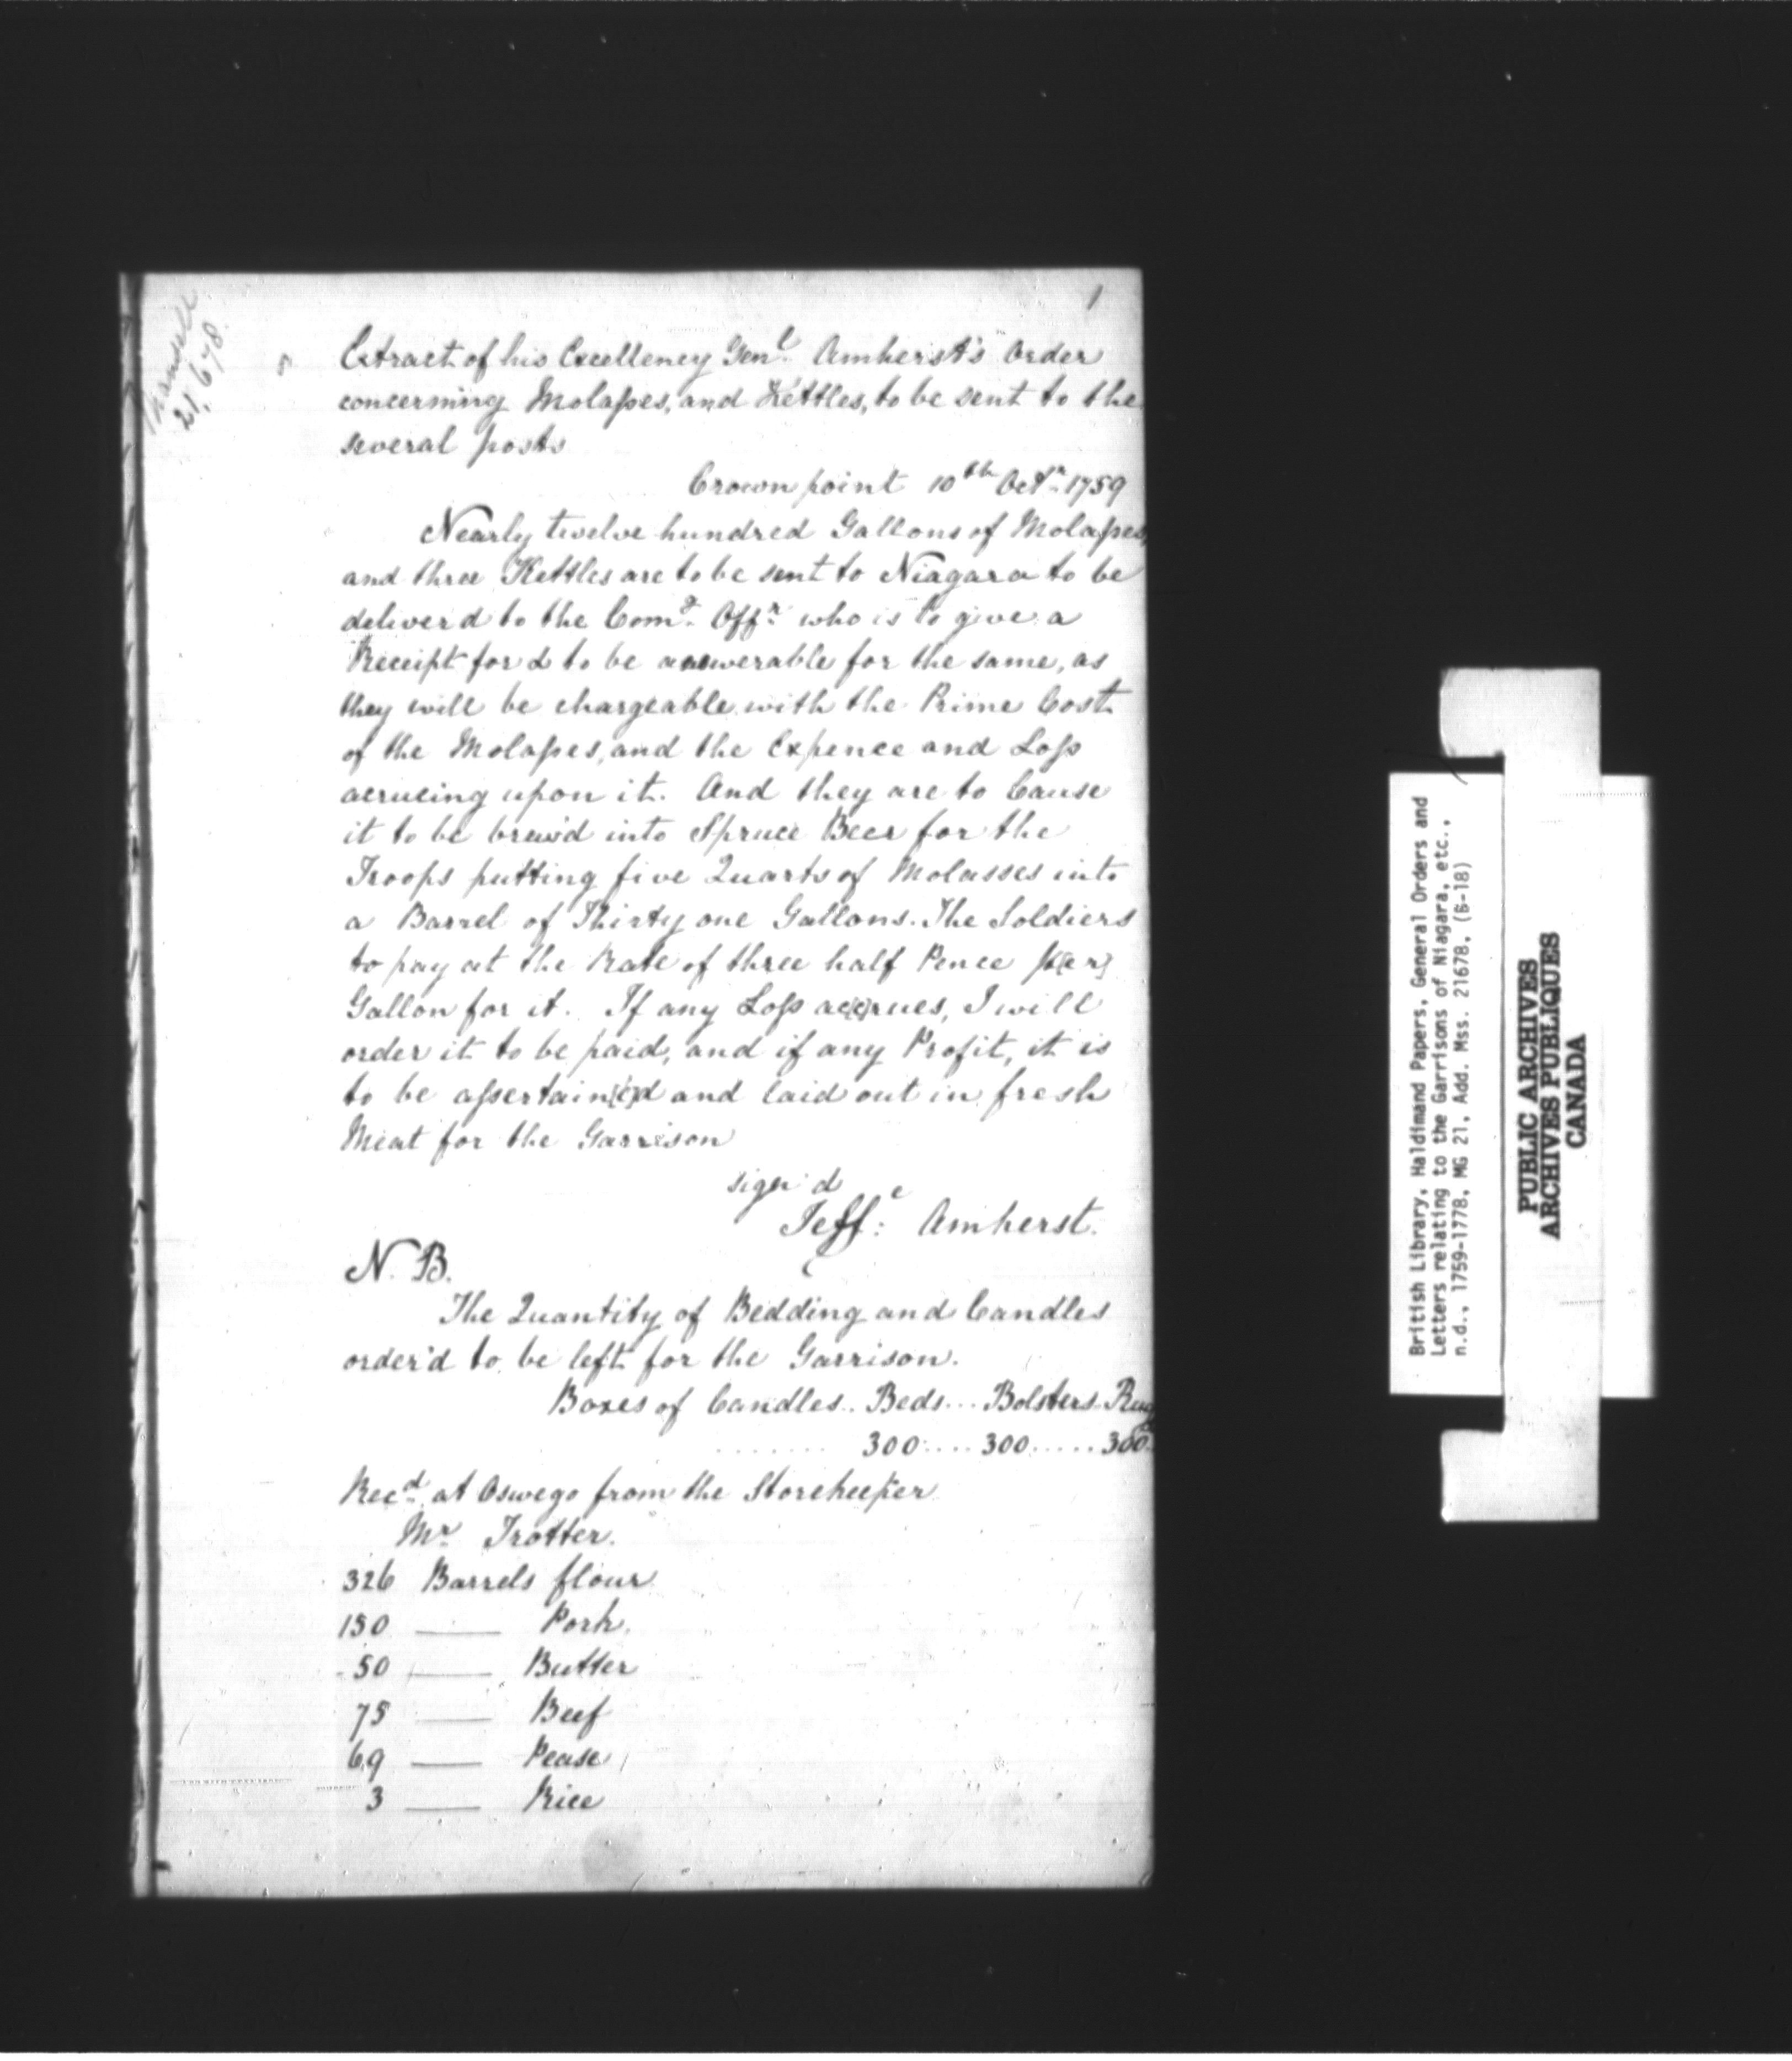 1
21,678.
Extract of his Excellency Genl. Amherst's Order
concerning Molasses, and Kettles, to be sent to the
several posts
Crown point 10th Octr. 1759
Nearly twelve hundred Gallons of Molasses,
and three Kettles are to be sent to Niagara to be
deliver'd to the Comg. Offr. who is to give a
Receipt for & to be answerable for the same, as
they will be chargeable with the Prime Cost
of the Molasses, and the Expence and Loss
acrueing upon it. And they are to Cause
it to be brew'd into Spruce Beer for the
Troops putting five Quarts of Molasses into
a Barrel of Thirty one Gallons. The Soldiers
to pay at the Rate of three half Pence p[er]
Gallon for it. If any Loss ac[c]rues, I will
order it to be paid, and if any Profit, it is
to be assertain[e]d and laid out in fresh
Meat for the Garrison
sign'd
Jeff:e Amherst.
N. B.
The Quantity of Bedding and Candles
order'd to be left for the Garrison.
Boxes of Candles.. Beds... Bolsters. Rug
........ 300.... 300..... 300.
Recd. at Oswego from the Storekeeper
Mr. Trotter.
326 Barrels flour
150 —— Pork.
50 —— Butter
75 —— Beef
69 —— Pease
3 —— Rice
British Library, Haldimand Papers, General Orders and
Letters relating to the Garrisons of Niagara, etc.,
n.d., 1759-1778, MG 21, Add. Mss. 21678, (B-18)
PUBLIC ARCHIVES
ARCHIVES PUBLIQUES
CANADA